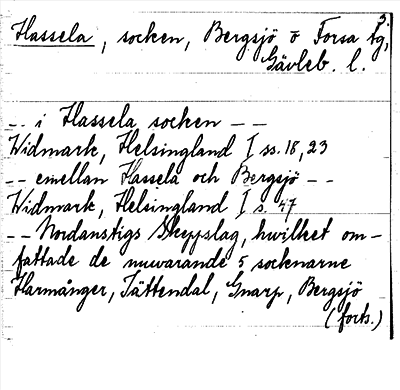 3.
Hassela, socken, Bergsjö o Forsa tg,
Gävleb. l.
-- i Hassela socken --
Widmark, Helsingland I ss. 18, 23
-- emellan Hassela och Bergsjö --
Widmark, Helsingland I s. 47
-- Nordanstigs Skeppslag, hwilket om-
fattade de nuvarande 5 socknarne
Harmånger, Jättendal, Gnarp, Bergsjö
(forts.)